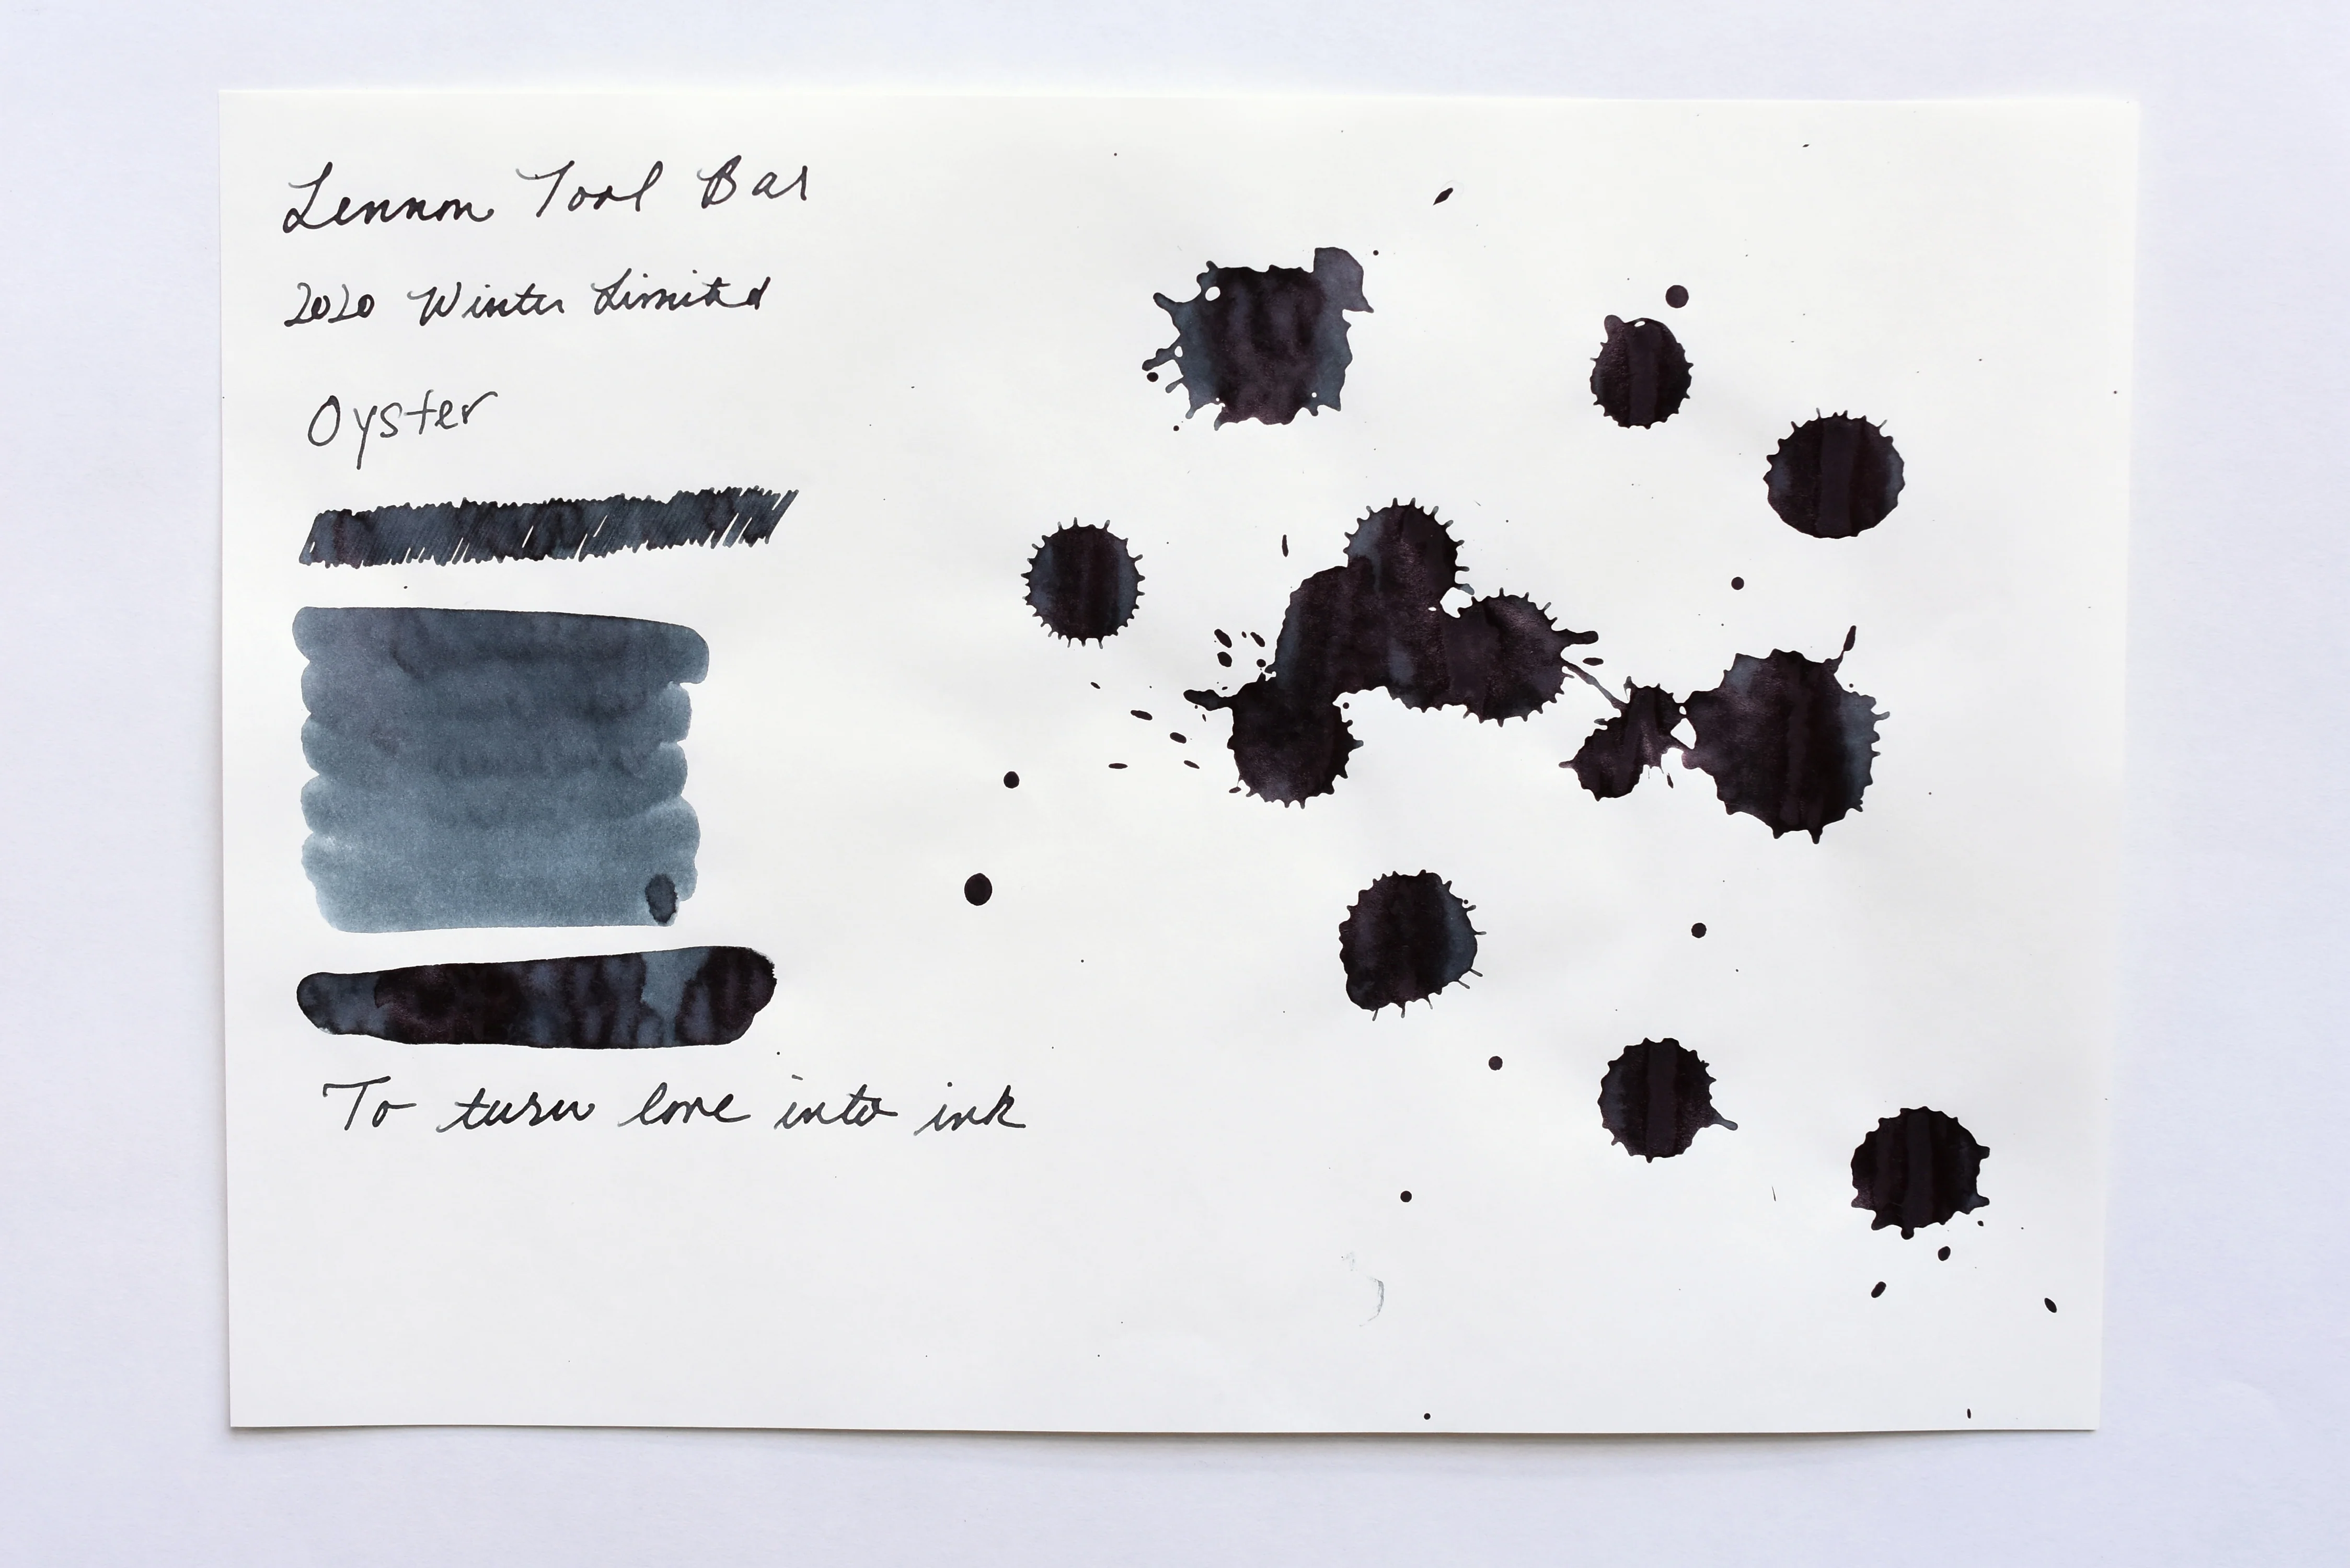 Lennon Tool Bar
2020 Winter Limited
Oyster
To turn love into ink